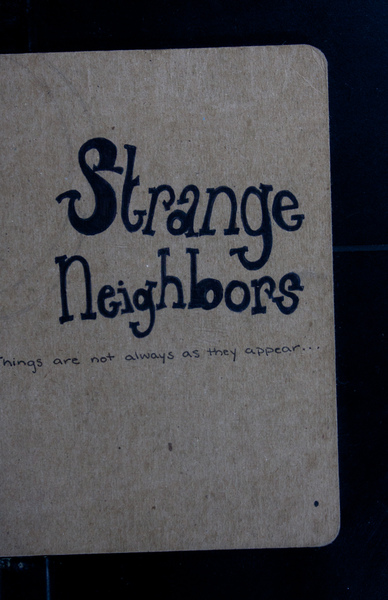 Strange
Neighbors
Things are not always as they appear...